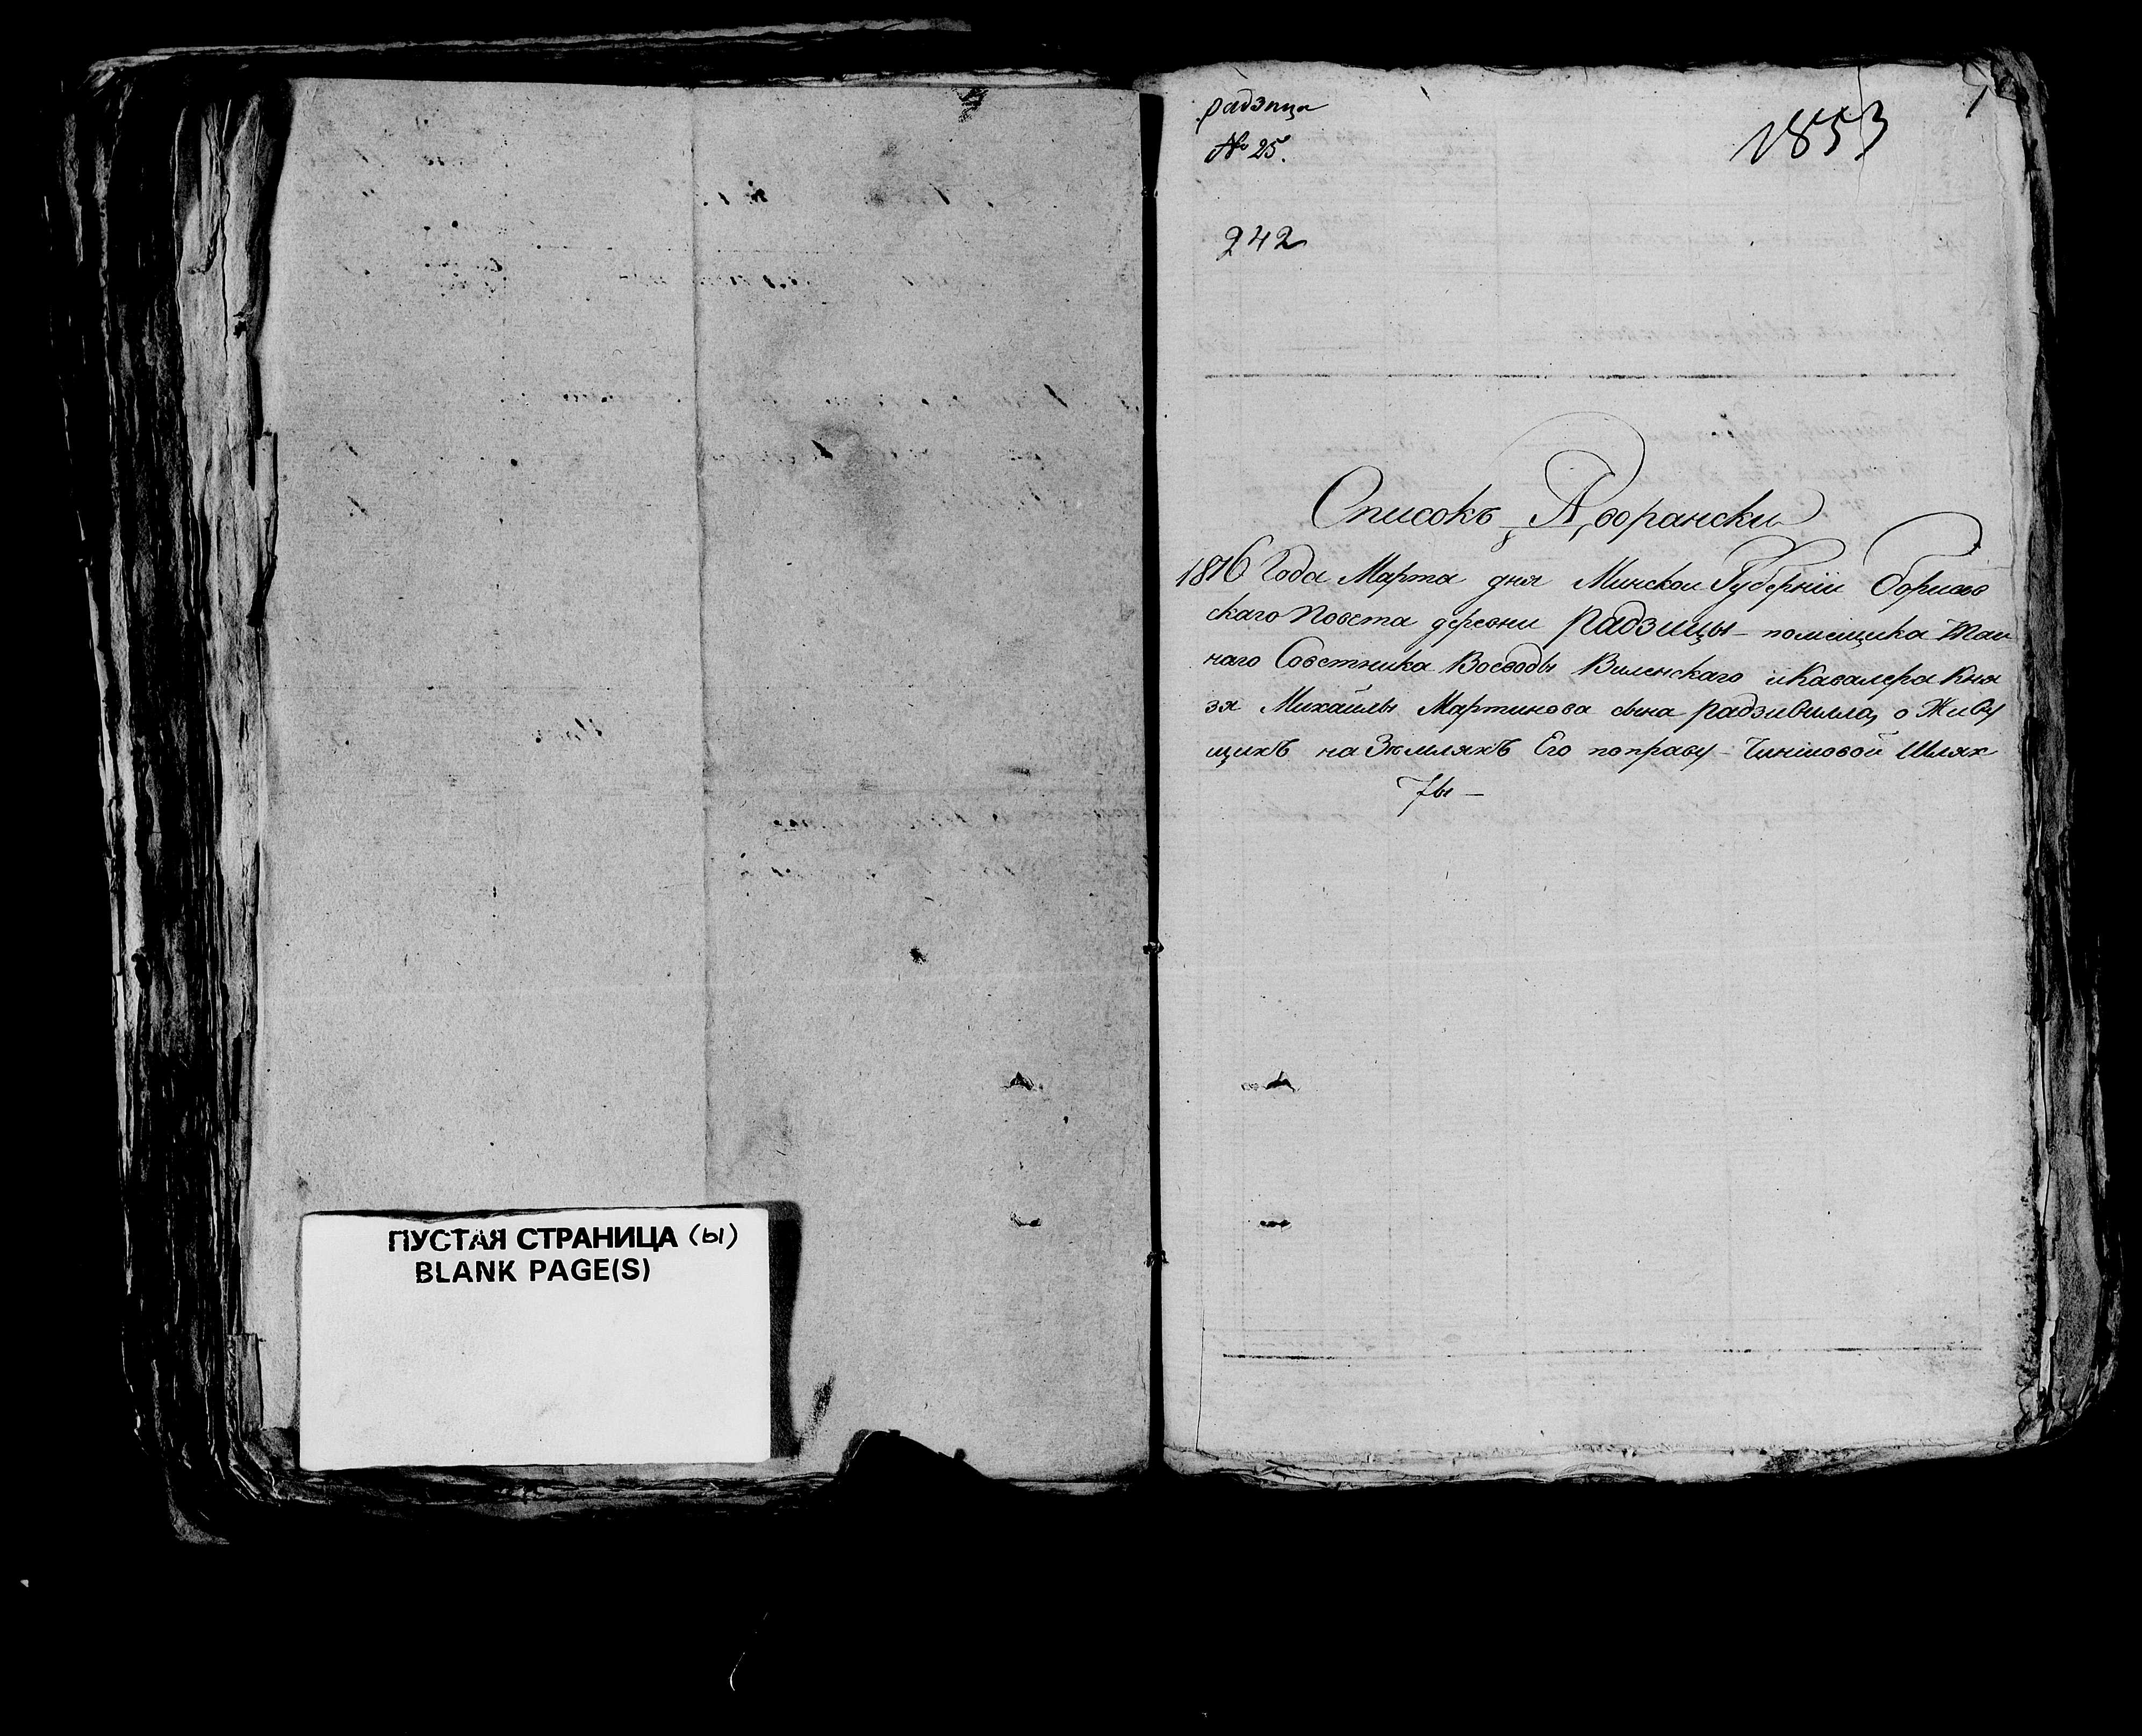 ПУСТАЯ СТРАНИЦА (ы)
BLANK PAGE(S)
радзица
№ 25.
1853
242
Списокъ Дворански
1816 Года Марта дня Минской Губернїи Борисов
скаго Повета деревни Радзицы – помещика Тай
наго Советника Воеводы Виленскаго и Кавалера Кня
зя Михайлы Мартинова сына Радзивилла, о Живу
щихъ на Земляхъ Его поправу – Чиншовой Шлях
ты —